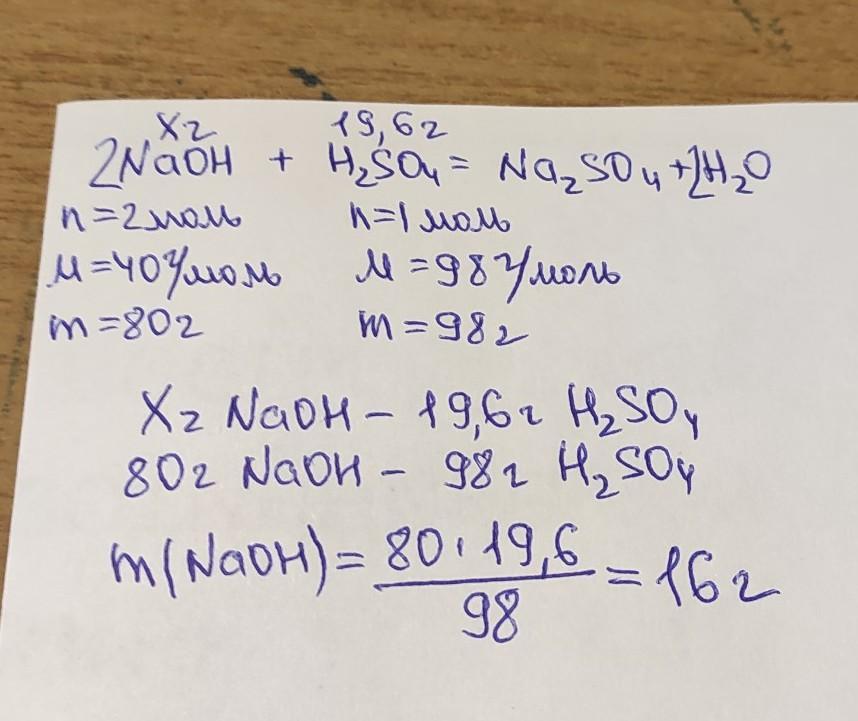 Xг 19,6г
2NaOH + H₂SO₄ = Na₂SO₄ + 2H₂O
n=2моль n=1моль
M=40г/моль M=98г/моль
m=80г m=98г
Xг NaOH – 19,6г H₂SO₄
80г NaOH – 98г H₂SO₄
m(NaOH) = 80·19,6 / 98 = 16г